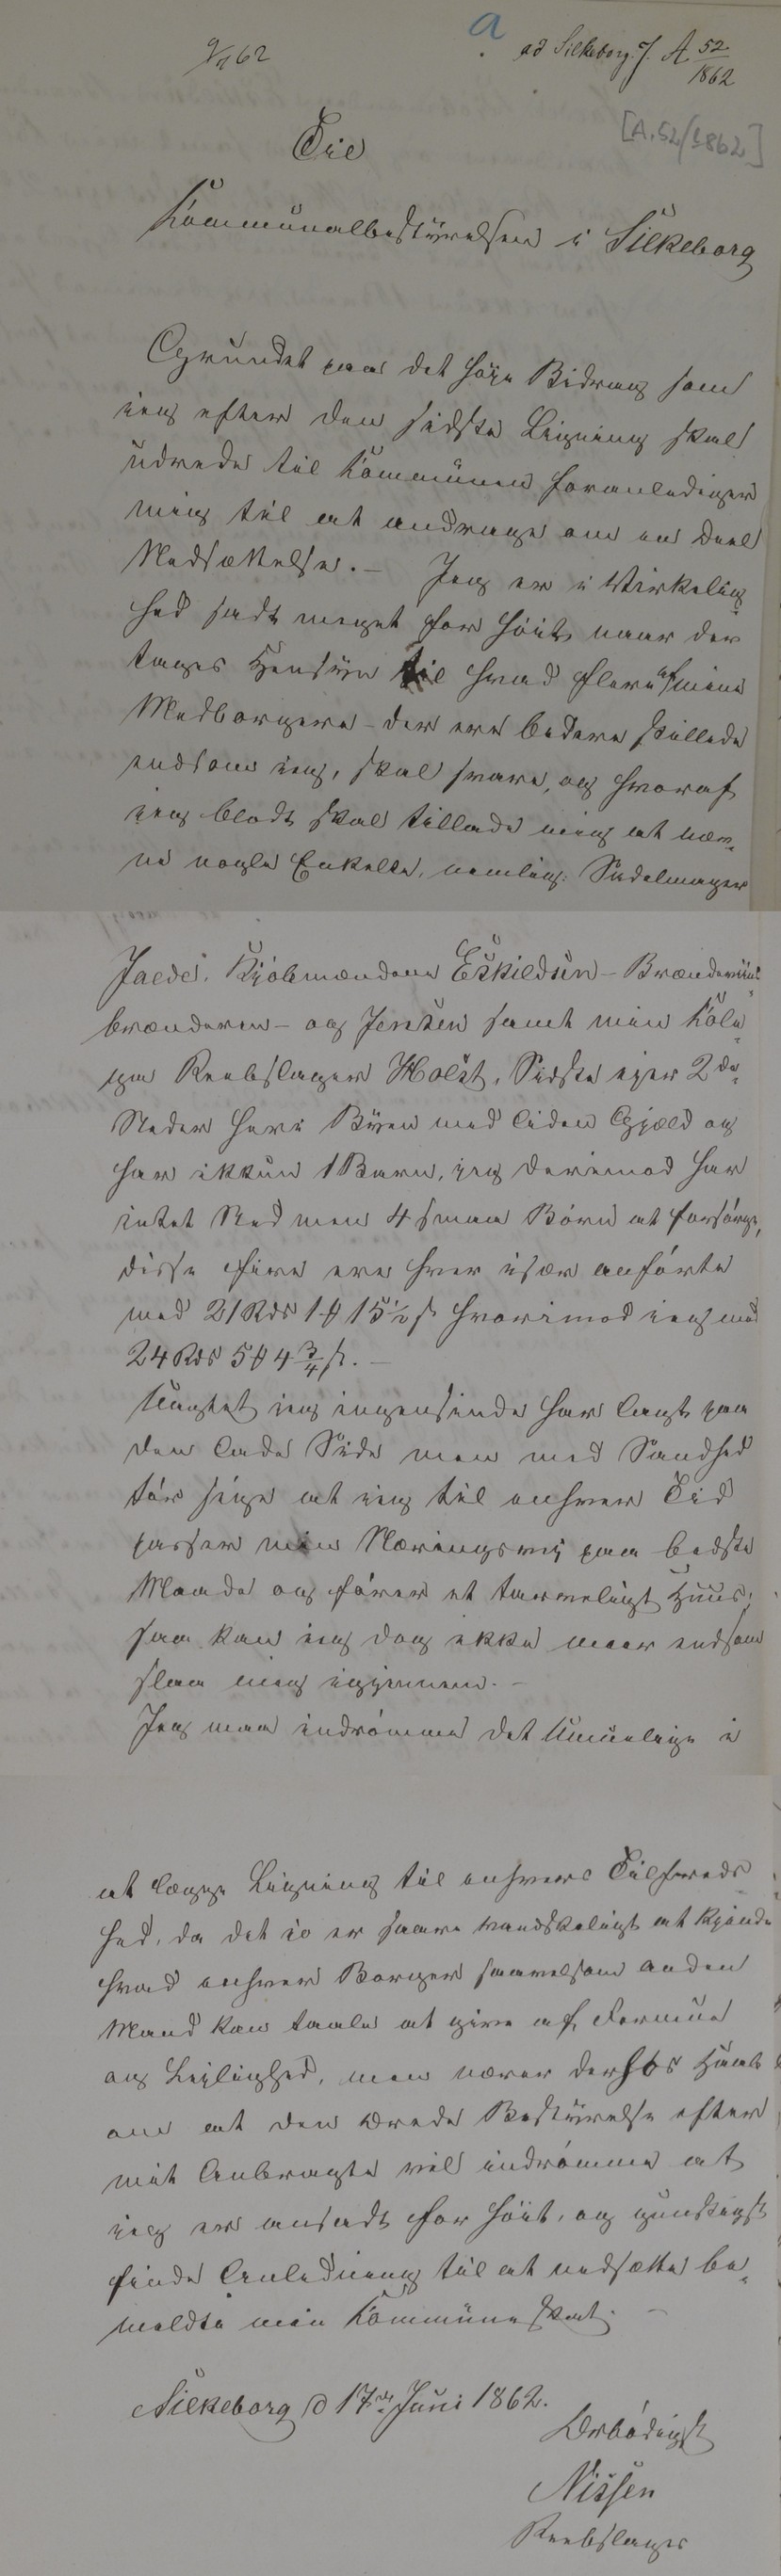 a
ad Silkeborg J. A 52/1862
[A.52/1862]
Til
Kommunalbestyrelsen i Silkeborg
Grundet paa det høje Bidrag som
ieg efter den sidste Ligning skal
udrede til Kommunen foranlediger
mig til at andrage om en deel
Nedsættelse. – Jeg er i Virkelig
hed sadt meget for høit naar der
tages Hensyn til hvad flere af mine
Medborgere – der ere bedere stillede
endsom ieg, skal svare, og hvoraf
ieg blodt skal tillade mig at næv-
ne nogle Enkelte, nemlig: Sadelmager
Jaede, Kjøbmændene Eskildsen – Brændeviins
brænderen – og Jensen samt min Kole
ga Reebslager Holst. Sidste ejer 2de
Steder her i Byen med liden Gjæld og
har ikkun 1 Barn, jeg derimod har
intet Sted men 4 smaa Børn at forsørge,
disse fire ere hver især anførte
med 21 Rds 1 # 15 1/2 s hvorimod ieg med
24 Rds 5 # 4 3/4 s. –
Uagtet ieg ingensinde har lagt paa
den lade Side men med Sandhed
tør sige at ieg til enhver Tid
passer min Næringsvej paa bedste
Maade og fører et tarveligt Huus,
saa kan ieg dog ikke meer endsom
slaa mig igjennem. –
Jeg maa indrømme det Umuelige i
at lægge Ligning til enhvers Tilfreds
hed, da det jo er saare vandskeligt at kjende
hvad enhver Borger saavelsom anden
Mand kan taale at give af Formue
og Lejlighed, men nærer derhos Haab
om at den ærede Bestyrelse efter
mit Anbragte vil indrømme at
ieg er ansadt for høit, og gunstigst
finde Anledning til at nedsætte be-
meldte min Kommuneskat. –
Silkeborg d 17de Juni 1862.
Ærbødigst
Nissen
Reebslager